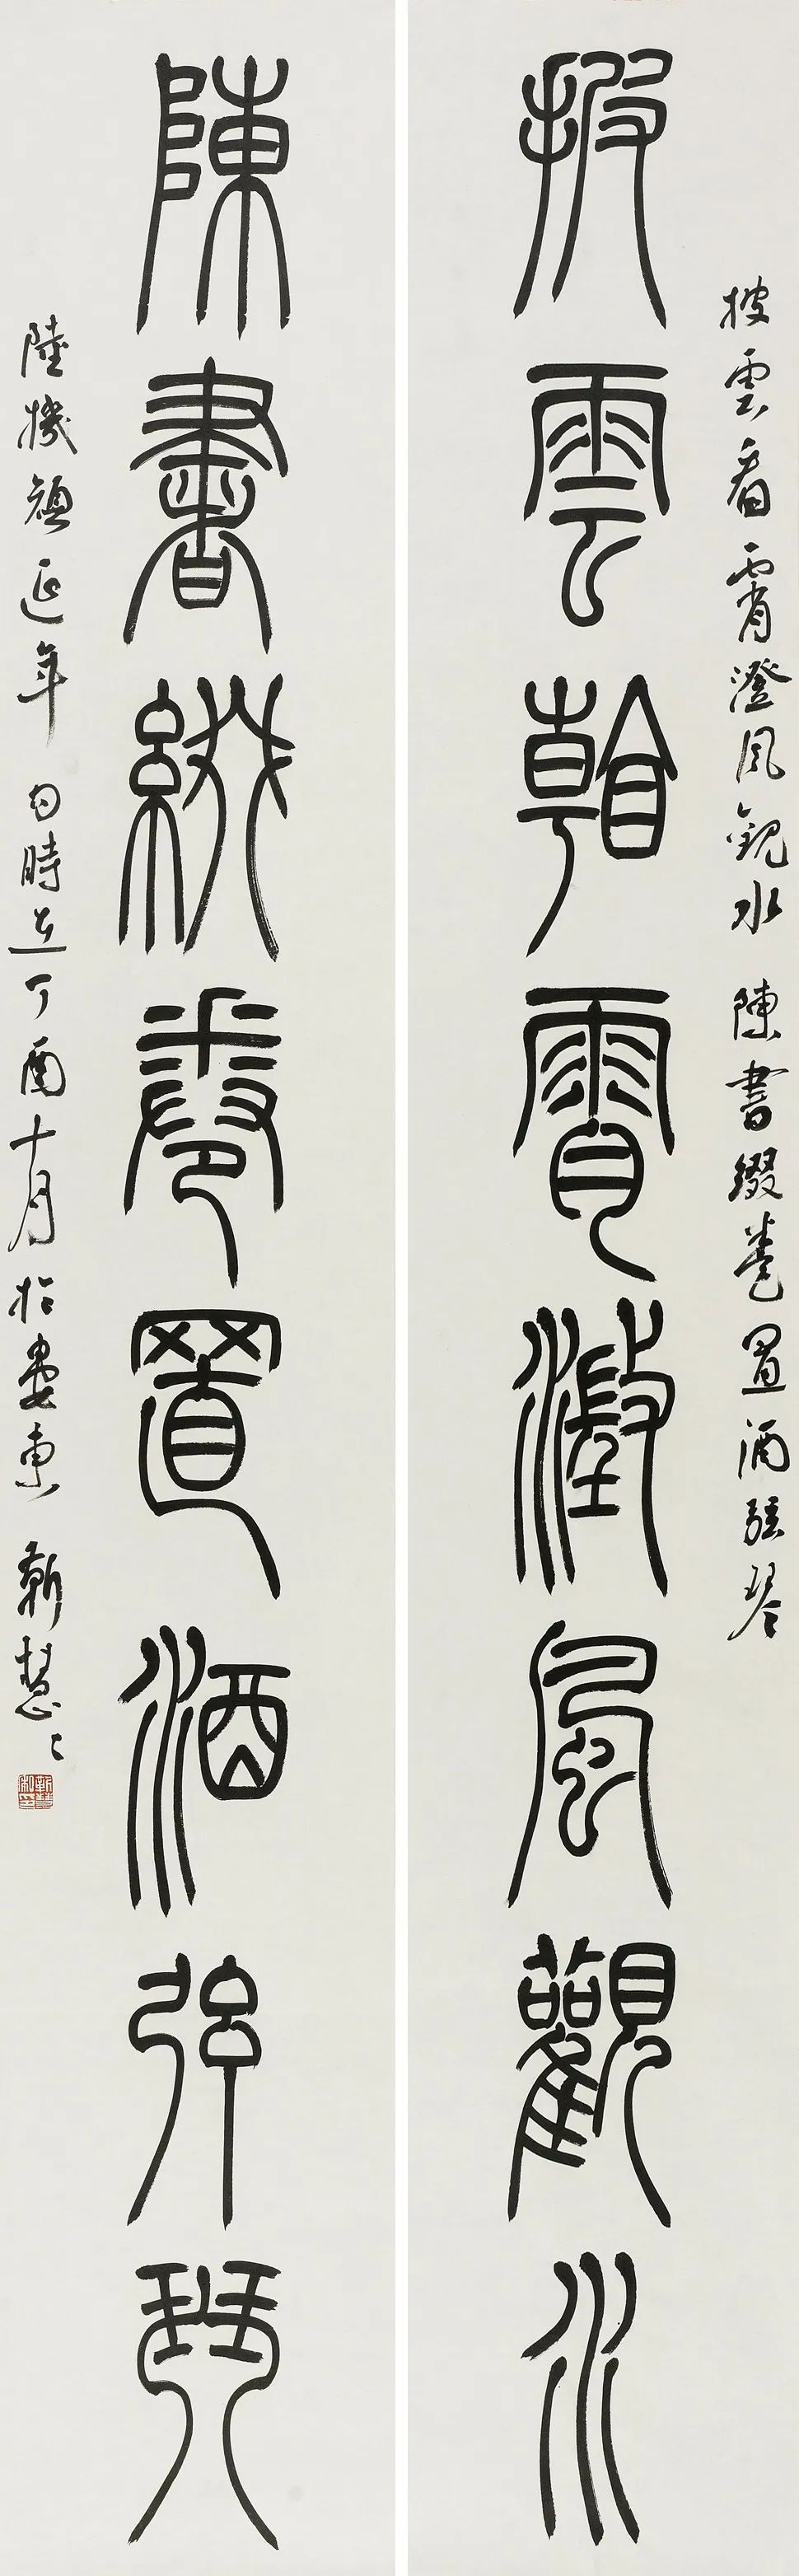 披雲看霄澄風觀水 陳書綴卷置酒弦琴
披雲看霄澄風觀水
陳書綴卷置酒弦琴
陸機顏延年句時在丁酉十月於婁東 靳慧〻